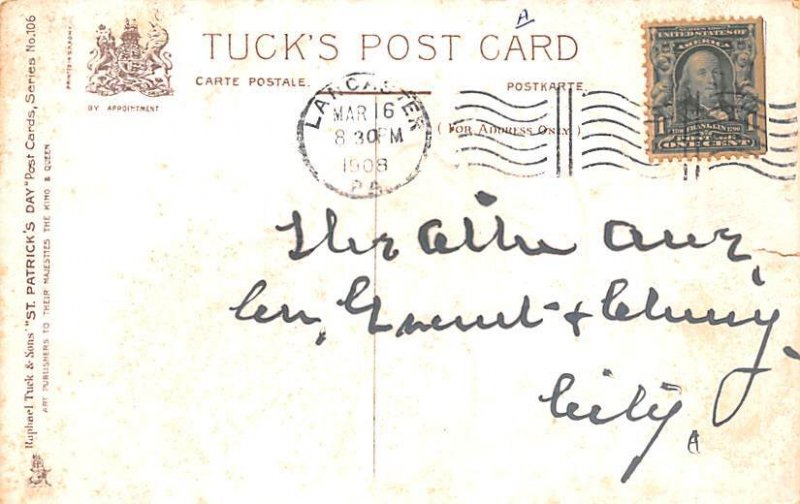 TUCK'S POST CARD
CARTE POSTALE.
POSTKARTE.
(FOR ADDRESS ONLY)
BY APPOINTMENT
Raphael Tuck & Sons' "ST. PATRICK'S DAY" Post Cards, Series No. 106
ART PUBLISHERS TO THEIR MAJESTIES THE KING & QUEEN
LANCASTER
MAR 16
8 30 PM
1908
PA.
UNITED STATES OF
AMERICA
1 1
ONE CENT
A
Cor, Grant & Cherry
City
A